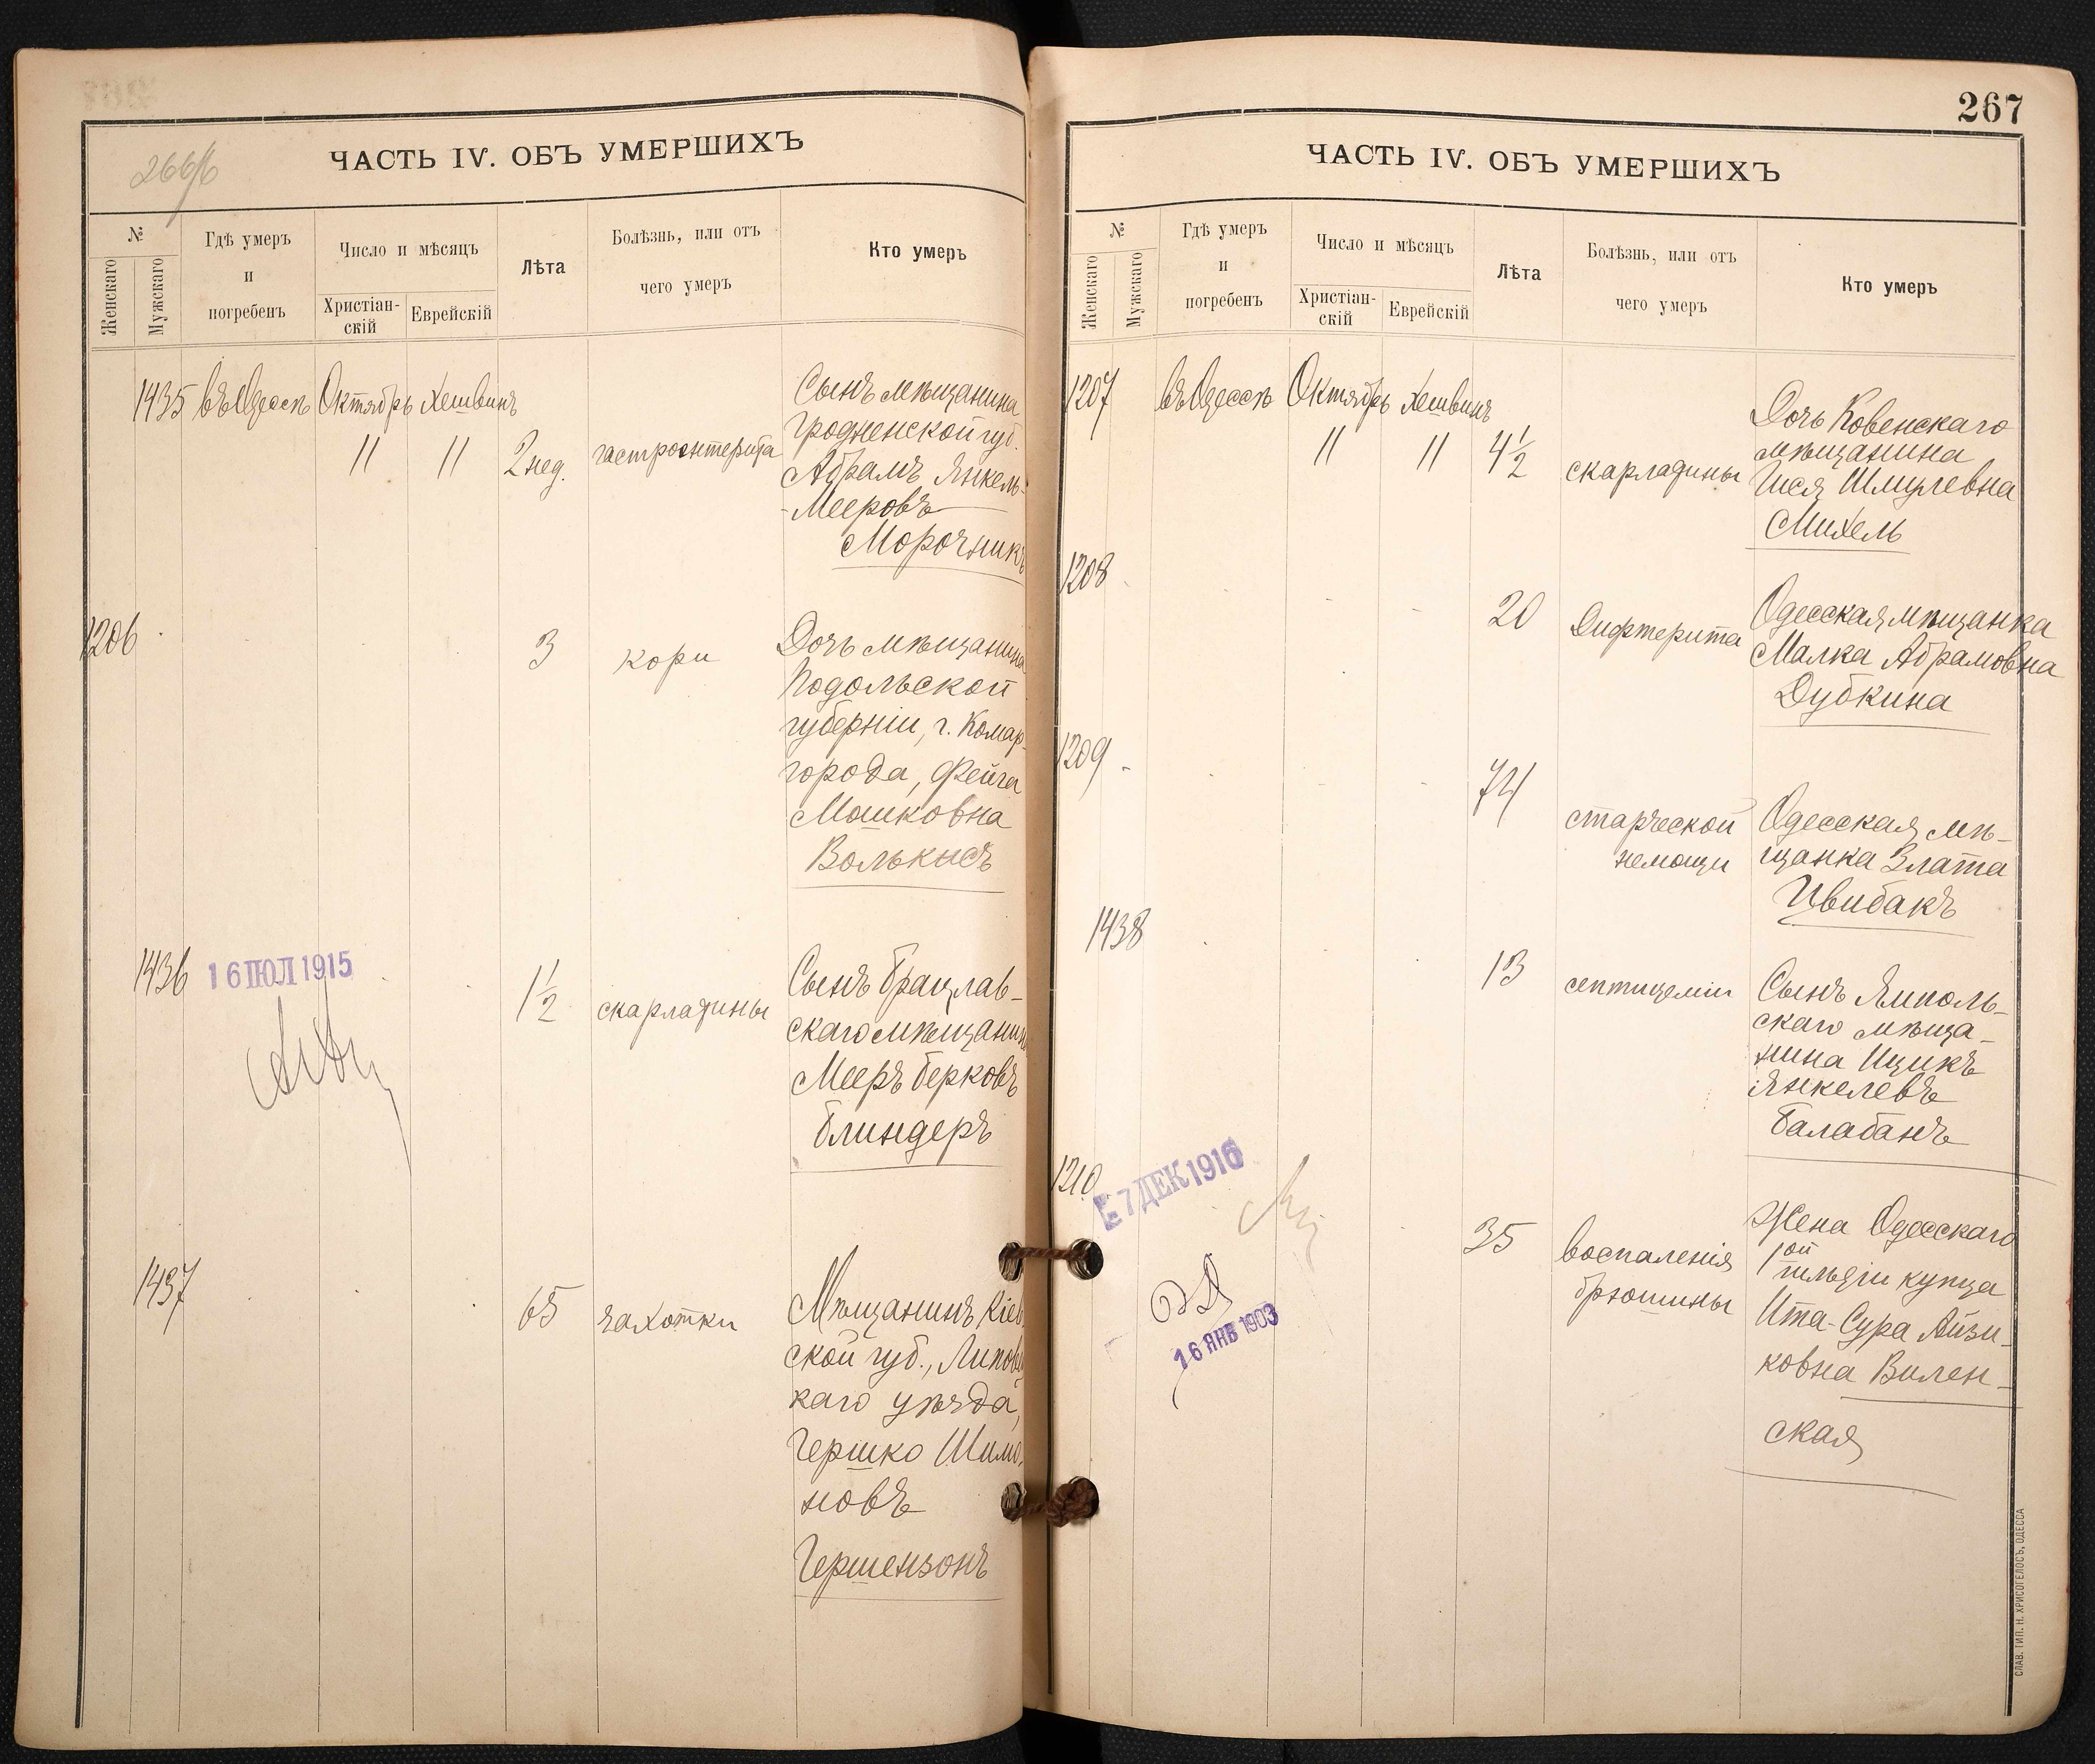 266/б
ЧАСТЬ IV. ОБЪ УМЕРШИХЪ
№
Женскаго
Мужскаго
Гдѣ умеръ
и
погребенъ
Число и мѣсяцъ
Христіан-
скій
Еврейскій
Лѣта
Болѣзнь, или отъ
чего умеръ
Кто умеръ
1435 въ Одессѣ Октябрь Хешвинъ
11 11 2 нед. гастроэнтерита
Сынъ мѣщанина
Гродненской губ.
Абрамъ Янкель-
-Мееровъ
Морочникъ
1206 3 кори
Дочь мѣщанина
Подольской
губерніи, г. Комар-
города, Фейга
Мошковна
Волькисъ
1436 16 ІЮЛ 1915 1½ скарладины
Сынъ Брацлав-
скаго мѣщанина
Мееръ Берковъ
Блиндеръ
1437 65 чахотки
Мѣщанинъ Кіев
ской губ., Липовец
каго уѣзда,
Гершко Шимо-
новъ
Гершензонъ
267
ЧАСТЬ IV. ОБЪ УМЕРШИХЪ
№
Женскаго
Мужскаго
Гдѣ умеръ
и
погребенъ
Число и мѣсяцъ
Христіан-
скій
Еврейскій
Лѣта
Болѣзнь, или отъ
чего умеръ
Кто умеръ
1207 въ Одессѣ Октябрь Хешвинъ
11 11 4½ скарладины
Дочь Ковенскаго
мѣщанина
Шмулевна
Михель
1208 20 Дифтерита
Одесская мѣщанка
Малка Абрамовна
Дубкина
1209 74 старческой
немощи
Одесская мѣ-
щанка Злата
Цвибакъ
1438 13 септицеміи
Сынъ Ямполь-
скаго мѣща-
нина Ицикъ
Янкелевъ
Балабанъ
1210 7 ДЕК 1916
16 ЯНВ 1903
35 воспаленія
брюшины
Жена Одесскаго
1ой гильдіи купца
Ита-Сура Айзи-
ковна Вилен-
ская
СЛАВ. ТИП. Н. ХРИСОГЕЛОСЪ, ОДЕССА